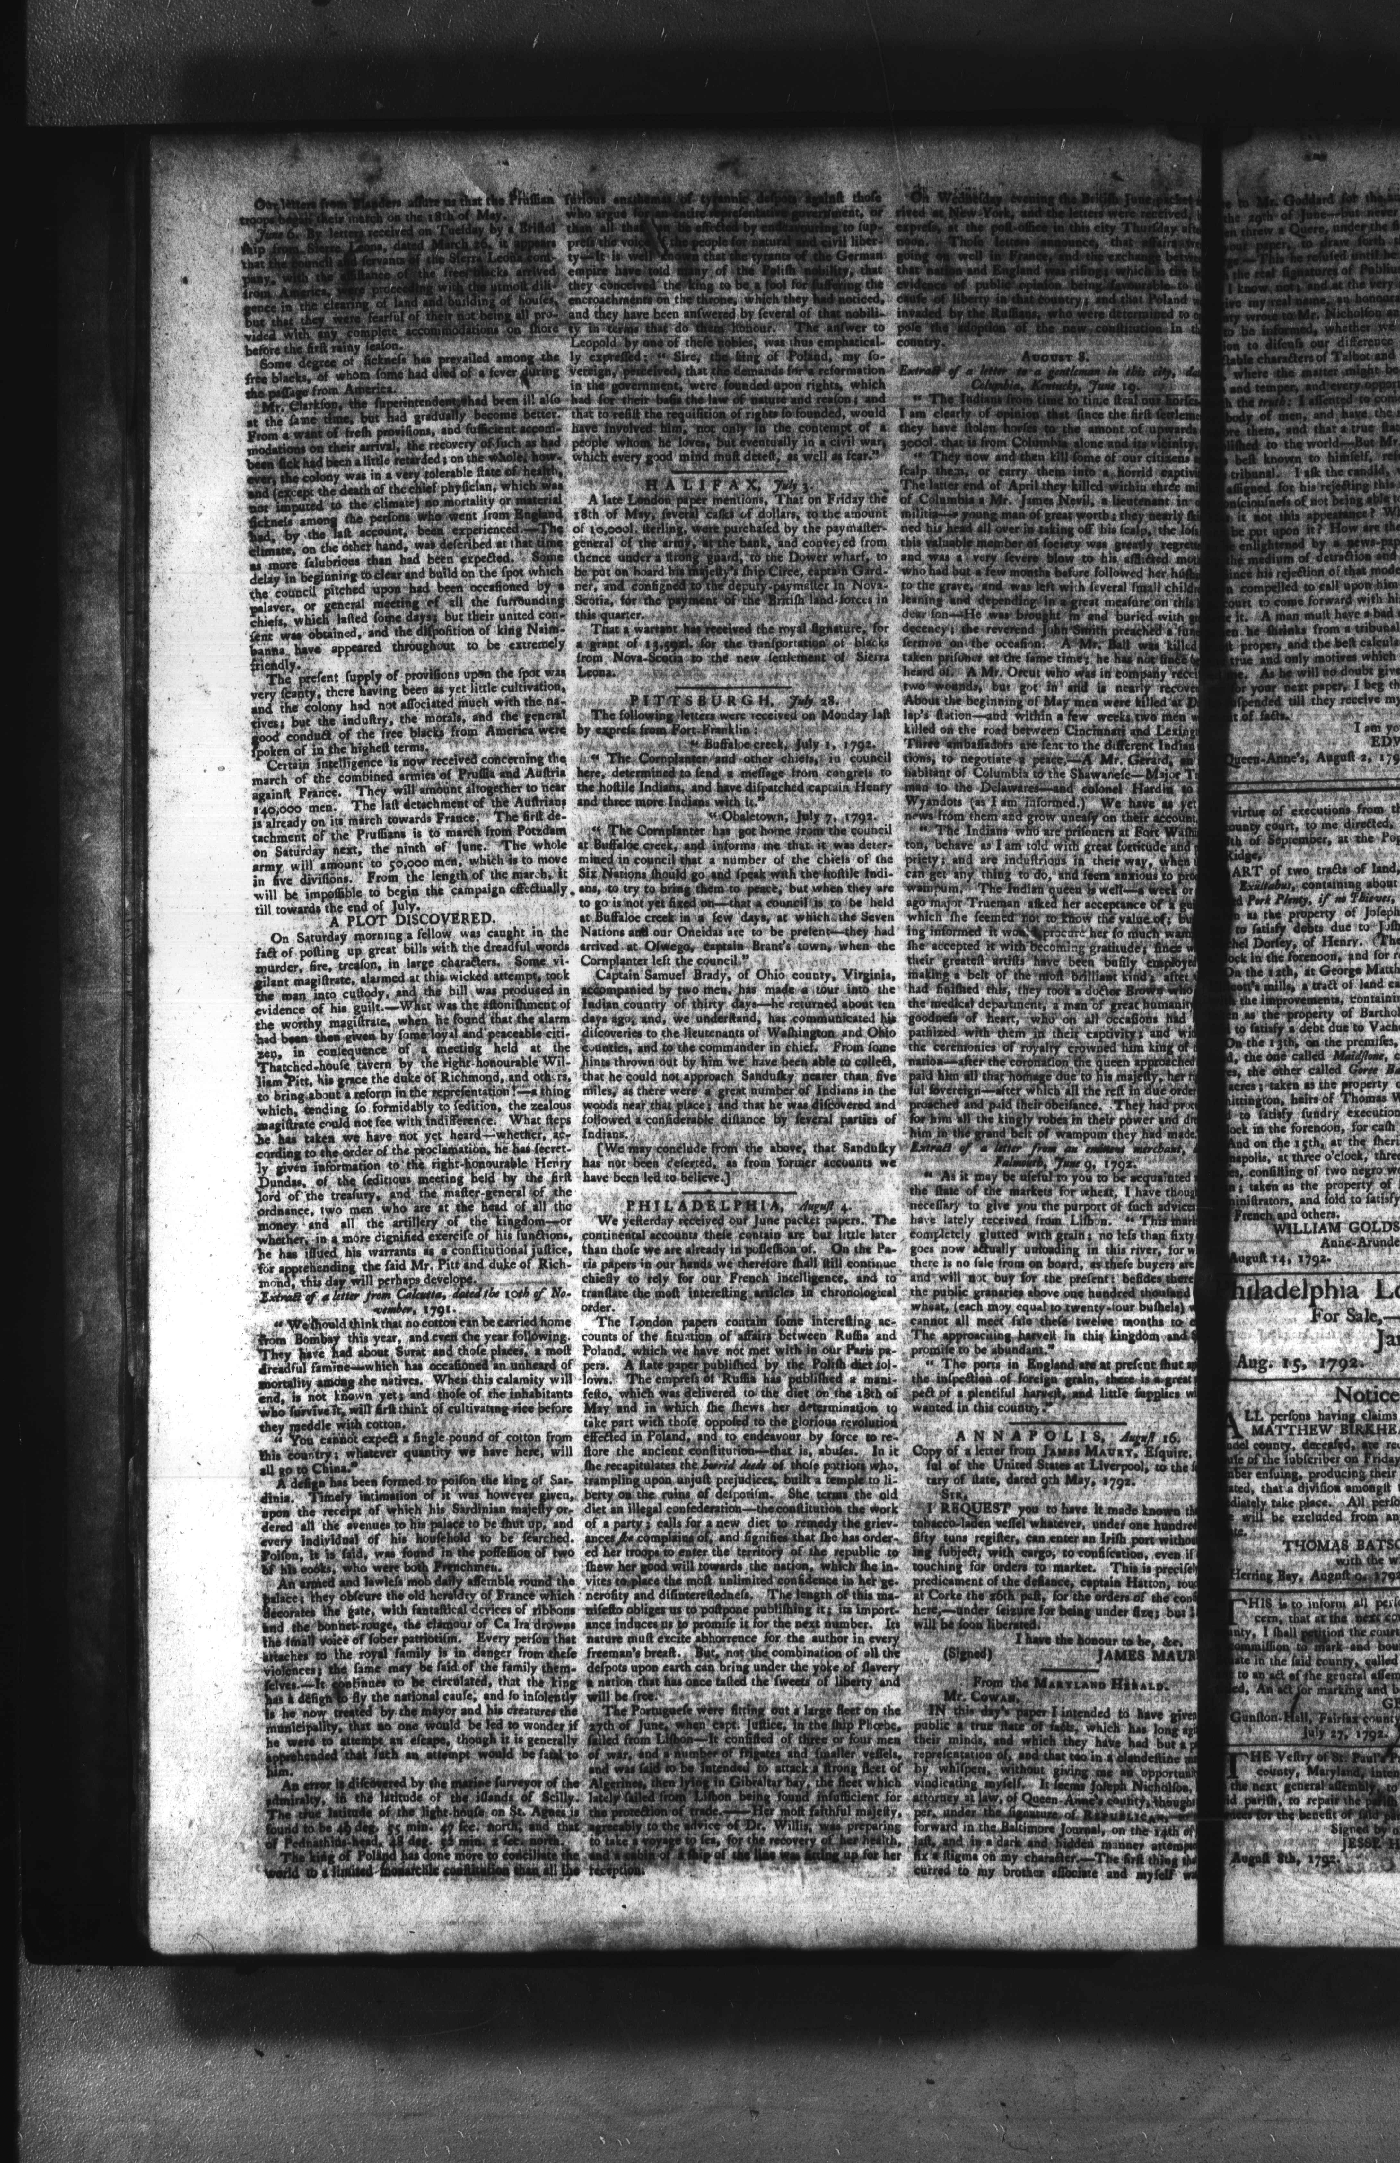 Our letters from Flanders assure us that the Prussian
troops began their march on the 18th of May.
June 6. By letters received on Tuesday by a Bristol
ship from Sierra Leona, dated March 26, it appears
that the council and servants of the Sierra Leona com-
pany, with the assistance of the free blacks arrived
from America, were proceeding with the utmost dili-
gence in the clearing of land and building of houses,
but that they were fearful of their not being all pro-
vided with any complete accommodations on shore
before the first rainy season.
Some degree of sickness has prevailed among the
free blacks, of whom some had died of a fever during
the passage from America.
Mr. Clarkson, the superintendent, had been ill also
at the same time, but had gradually become better.
From a want of fresh provisions, and sufficient accom-
modations on their arrival, the recovery of such as had
been sick had been a little retarded; on the whole, how-
ever, the colony was in a very tolerable state of health,
and (except the death of the chief physician, which was
not imputed to the climate) no mortality or material
sickness among the persons who went from England
had, by the last account, been experienced.—The
climate, on the other hand, was described at that time
as more salubrious than had been expected. Some
delay in beginning to clear and build on the spot which
the council pitched upon had been occasioned by a
palaver, or general meeting of all the surrounding
chiefs, which lasted some days; but their united con-
sent was obtained, and the disposition of king Naim-
banna have appeared throughout to be extremely
friendly.
The present supply of provisions upon the spot was
very scanty, there having been as yet little cultivation,
and the colony had not associated much with the na-
tives; but the industry, the morals, and the general
good conduct of the free blacks from America were
spoken of in the highest terms.
Certain intelligence is now received concerning the
march of the combined armies of Prussia and Austria
against France. They will amount altogether to near
140,000 men. The last detachment of the Austrians
is already on its march towards France. The first de-
tachment of the Prussians is to march from Potzdam
on Saturday next, the ninth of June. The whole
army will amount to 50,000 men, which is to move
in five divisions. From the length of the march, it
will be impossible to begin the campaign effectually
till towards the end of July.
A PLOT DISCOVERED.
On Saturday morning a fellow was caught in the
fact of posting up great bills with the dreadful words
murder, fire, treason, in large characters. Some vi-
gilant magistrate, alarmed at this wicked attempt, took
the man into custody, and the bill was produced in
evidence of his guilt.—What was the astonishment of
the worthy magistrate, when he found that the alarm
had been then given by some loyal and peaceable citi-
zen, in consequence of a meeting held at the
Thatched-house tavern by the right-honourable Wil-
liam Pitt, his grace the duke of Richmond, and others,
to bring about a reform in the representation!—a thing
which, tending so formidably to sedition, the zealous
magistrate could not see with indifference. What steps
he has taken we have not yet heard—whether, ac-
cording to the order of the proclamation, he has secret-
ly given information to the right-honourable Henry
Dundas, of the seditious meeting held by the first
lord of the treasury, and the master-general of the
ordnance, two men who are at the head of all the
money and all the artillery of the kingdom—or
whether, in a more dignified exercise of his functions,
he has issued his warrants as a constitutional justice,
for apprehending the said Mr. Pitt and duke of Rich-
mond, this day will perhaps develope.
Extract of a letter from Calcutta, dated the 10th of No-
vember, 1791.
" We should think that no cotton can be carried home
from Bombay this year, and even the year following.
They have had about Surat and those places, a most
dreadful famine—which has occasioned an unheard of
mortality among the natives. When this calamity will
end, is not known yet; and those of the inhabitants
who survive it, will first think of cultivating rice before
they meddle with cotton.
" You cannot expect a single pound of cotton from
this country; whatever quantity we have here, will
all go to China."
A design has been formed to poison the king of Sar-
dinia. Timely intimation of it was however given,
upon the receipt of which his Sardinian majesty or-
dered all the avenues to his palace to be shut up, and
every individual of his household to be searched.
Poison, it is said, was found in the possession of two
of his cooks, who were both Frenchmen.
An armed and lawless mob daily assemble round the
palace; they obscure the old heraldry of France which
decorates the gate, with fantastical devices of ribbons
and the bonnet-rouge, the clamour of Ca Ira drowns
the small voice of sober patriotism. Every person that
attaches to the royal family is in danger from these
violences; the same may be said of the family them-
selves.—It continues to be circulated, that the king
has a design to fly the national cause, and so insolently
is he now treated by the mayor and his creatures the
municipality, that no one would be led to wonder if
he were to attempt an escape, though it is generally
apprehended that such an attempt would be fatal to
him.
An error is discovered by the marine surveyor of the
admiralty, in the latitude of the islands of Scilly.
The true latitude of the light-house on St. Agnes is
found to be 49 deg. 55 min. 47 sec. north, and that
of Pednathias-head, 48 deg. 52 min. 2 sec. north.
The king of Poland has done more to conciliate the
world to a limited monarchic constitution than all the
furious enthusiasm of tyrannic despots against those
who argue for an entire representative government, or
than all that can be effected by endeavouring to sup-
press the voice of the people for natural and civil liber-
ty—It is well known that the tyrants of the German
empire have told many of the Polish nobility, that
they conceived the king to be a fool for suffering the
encroachments on the throne, which they had noticed,
and they have been answered by several of that nobili-
ty in terms that do them honour. The answer to
Leopold by one of these nobles, was thus emphatical-
ly expressed; " Sire, the king of Poland, my so-
vereign, perceived, that the demands for a reformation
in the government, were founded upon rights, which
had for their basis the law of nature and reason; and
that to resist the requisition of rights so founded, would
have involved him, not only in the contempt of a
people whom he loves, but eventually in a civil war,
which every good mind must detest, as well as fear."
HALIFAX, July 3.
A late London paper mentions, That on Friday the
18th of May, several casks of dollars, to the amount
of 10,000l. sterling, were purchased by the paymaster-
general of the army, at the bank, and conveyed from
thence under a strong guard, to the Dower wharf, to
be put on board his majesty's ship Circe, captain Gard-
ner, and consigned to the deputy-paymaster in Nova-
Scotia, for the payment of the British land-forces in
this quarter.
That a warrant has received the royal signature, for
a grant of 15,592l. for the transportation of blacks
from Nova-Scotia to the new settlement of Sierra
Leona.
PITTSBURGH, July 28.
The following letters were received on Monday last
by express from Fort-Franklin:
" Buffaloe creek, July 1, 1792.
" The Cornplanter and other chiefs, in council
here, determined to send a message from congress to
the hostile Indians, and have dispatched captain Henry
and three more Indians with it."
" Obaletown, July 7, 1792.
" The Cornplanter has got home from the council
at Buffaloe creek, and informs me that it was deter-
mined in council that a number of the chiefs of the
Six Nations should go and speak with the hostile Indi-
ans, to try to bring them to peace, but when they are
to go is not yet fixed on—that a council is to be held
at Buffaloe creek in a few days, at which the Seven
Nations and our Oneidas are to be present—they had
arrived at Oswego, captain Brant's town, when the
Cornplanter left the council."
Captain Samuel Brady, of Ohio county, Virginia,
accompanied by two men, has made a tour into the
Indian country of thirty days—he returned about ten
days ago; and, we understand, has communicated his
discoveries to the lieutenants of Washington and Ohio
counties, and to the commander in chief. From some
hints thrown out by him we have been able to collect,
that he could not approach Sandusky nearer than five
miles, as there were a great number of Indians in the
woods near that place; and that he was discovered and
followed a considerable distance by several parties of
Indians.
[We may conclude from the above, that Sandusky
has not been deserted, as from former accounts we
have been led to believe.]
PHILADELPHIA, August 4.
We yesterday received our June packet papers. The
continental accounts these contain are but little later
than those we are already in possession of. On the Pa-
ris papers in our hands we therefore shall still continue
chiefly to rely for our French intelligence, and to
translate the most interesting articles in chronological
order.
The London papers contain some interesting ac-
counts of the situation of affairs between Russia and
Poland, which we have not met with in our Paris pa-
pers. A state paper published by the Polish diet fol-
lows. The empress of Russia has published a mani-
festo, which was delivered to the diet on the 18th of
May and in which she shews her determination to
take part with those opposed to the glorious revolution
effected in Poland, and to endeavour by force to re-
store the ancient constitution—that is, abuses. In it
she recapitulates the horrid deeds of those patriots who,
trampling upon unjust prejudices, built a temple to li-
berty on the ruins of despotism. She terms the old
diet an illegal confederation—the constitution the work
of a party; calls for a new diet to remedy the griev-
ances she complains of, and signifies that she has order-
ed her troops to enter the territory of the republic to
shew her good will towards the nation, which she in-
vites to place the most unlimited confidence in her ge-
nerosity and disinterestedness. The length of this ma-
nifesto obliges us to postpone publishing it; its import-
ance induces us to promise it for the next number. Its
nature must excite abhorrence for the author in every
freeman's breast. But, not the combination of all the
despots upon earth can bring under the yoke of slavery
a nation that has once tasted the sweets of liberty and
will be free.
The Portuguese were fitting out a large fleet on the
27th of June, when capt. Justice, in the ship Phœbe,
sailed from Lisbon—It consisted of three or four men
of war, and a number of frigates and smaller vessels,
and was said to be intended to attack a strong fleet of
Algerines, then lying in Gibraltar bay, the fleet which
lately sailed from Lisbon being found insufficient for
the protection of trade.——Her most faithful majesty,
agreeably to the advice of Dr. Willis, was preparing
to take a voyage to sea, for the recovery of her health,
and a cabin of a ship of the line was fitting up for her
reception.
On Wednesday evening the British June packet
rived at New-York, and the letters were received,
express, at the post-office in this city Thursday
noon. Those letters announce, that affairs
going on well in France, and the exchange
that nation and England was rising; which is the
evidence of public opinion being favourable to
cause of liberty in that country; and that Poland
invaded by the Russians, who were determined to
pose the adoption of the new constitution in
country.
AUGUST 8.
Extract of a letter to a gentleman in this city,
Columbia, Kentucky, June 19.
" The Indians from time to time steal our
I am clearly of opinion that since the first
they have stolen horses to the amont of upwards
3000l. that is from Columbia alone and its vicinity.
" They now and then kill some of our citizens
scalp them, or carry them into a horrid
The latter end of April they killed within three
of Columbia a Mr. James Nevil, a lieutenant in
militia—a young man of great worth; they nearly
ned his head all over in taking off his scalp, the
this valuable member of society was greatly
and was a very severe blow to his afflicted
who had but a few months before followed her
to the grave, and was left with several small
leaning and depending in a great measure on this
dear son—He was brought in and buried with
decency; the reverend John Smith preached a
sermon on the occasion. A Mr. Ball was killed
taken prisoner at the same time; he has not since
heard of. A Mr. Orcut who was in company
two wounds, but got in and is nearly
About the beginning of May men were killed at
lap's station—and within a few weeks two men
killed on the road between Cincinnati and
Three ambassadors are sent to the different Indian
tions, to negotiate a peace.—A Mr. Gerard, an
habitant of Columbia to the Shawanese—Major
man to the Delawares—and colonel Hardin to
Wyandots (as I am informed.) We have as yet
news from them and grow uneasy on their account.
" The Indians who are prisoners at Fort
ton, behave as I am told with great fortitude and
priety; and are industrious in their way, when
can get any thing to do, and seem anxious to
wampum. The Indian queen is well—a week or
ago major Trueman asked her acceptance of a
which she seemed not to know the value of; but
ing informed it would procure her so much
she accepted it with becoming gratitude; since
their greatest artists have been busily
making a belt of the most brilliant kind; after
had finished this, they took a doctor Brown who
the medical department, a man of great humanity
goodness of heart, who on all occasions had
pathized with them in their captivity; and
the ceremonies of royalty crowned him king of
nation—after the coronation the queen approached
paid him all that homage due to his majesty, her
ful sovereign—after which all the rest in due order
proached and paid their obeisance. They had
for him all the kingly robes in their power and
him in the grand belt of wampum they had made.
Extract of a letter from an eminent merchant,
Falmouth, June 9, 1792.
" As it may be useful to you to be acquainted
the state of the markets for wheat, I have
necessary to give you the purport of such advice
have lately received from Lisbon. " This
completely glutted with grain; no less than sixty
goes now actually unloading in this river, for
there is no sale from on board, as these buyers are
and will not buy for the present: besides there
the public granaries above one hundred thousand
wheat, (each moy equal to twenty-four bushels)
cannot all meet sale these twelve months to
The approaching harvest in this kingdom and
promise to be abundant."
" The ports in England are at present shut
the inspection of foreign grain, there is a great
pect of a plentiful harvest, and little supplies
wanted in this country."
ANNAPOLIS, August 16.
Copy of a letter from JAMES MAURY, Esquire,
ful of the United States at Liverpool, to the
tary of state, dated 9th May, 1792.
SIR,
I REQUEST you to have it made known
tobacco-laden vessel whatever, under one hundred
fifty tuns register, can enter an Irish port without
ing subject, with cargo, to confiscation, even if
touching for orders to market. This is precisely
predicament of the defiance, captain Hatton,
at Corke the 26th past, for the orders of the
here,—under seizure for being under size; but
will be soon liberated.
I have the honour to be, &c.
(Signed) JAMES MAUR
From the MARYLAND HERALD.
Mr. COWAN,
IN this day's paper I intended to have
public a true state of facts, which has long
their minds, and which they have had but a
representation of, and that too in a clandestine
by whispers, without giving me an
vindicating myself. It seems Joseph Nicholson,
attorney at law, of Queen-Anne's county, thought
per, under the signature of REPUBLICAN,
forward in the Baltimore Journal, on the 14th of
last, and in a dark and hidden manner
fix a stigma on my character.—The first thing
curred to my brother associate and myself
to Mr. Goddard for the
the 29th of June—but
threw a Quere, under the
paper, to draw forth
—This he refused until
the real signatures of
I know not; and at the very
my real name, an
wrote to Mr. Nicholson
to be informed, whether
to discuss our difference
characters of Talbot and
where the matter might be
and temper, and every
the truth; I assented to
body of men, and have
them, and that a true
lished to the world—But Mr.
best known to himself,
tribunal. I ask the candid,
assigned for his rejecting this
of not being able
it not this appearance?
be put upon it? How are
enlightened by a news-paper
the medium of detraction and
since his rejection of that mode
compelled to call upon him
court to come forward with
it. A man must have
he shrinks from a tribunal
proper, and the best
true and only motives which
me. As he will no doubt
your next paper, I beg
suspended till they receive
of facts.
I am
EDW
Queen-Anne's, August 2, 179
virtue of executions from
county court, to me directed,
of September, at the
ridge,
ART of two tracts of land,
containing about
Pork Plenty, if no Thieves,
as the property of Joseph
to satisfy debts due to
Dorsey, of Henry. (The
clock in the forenoon, and for
On the 12th, at George
mills, a tract of land
the improvements,
as the property of
to satisfy a debt due to
On the 13th, on the premises,
the one called Maidstone,
the other called Gores
acres; taken as the property
heirs of Thomas
to satisfy sundry
clock in the forenoon, for cash
And on the 15th, at the
napolis, at three o'clock,
consisting of two negro
taken as the property of
ministrators, and sold to satisfy
French and others.
WILLIAM GOLDS
Anne-Arunde
August 14, 1792.
hiladelphia Lo
For Sale,—
Ja
Aug. 15, 1792.
Notice
ALL persons having claims
MATTHEW BIRKHEA
del county, deceased, are
of the subscriber on Friday
ensuing, producing their
that a division amongst
diately take place. All
will be excluded from
THOMAS BATSO
with the
Herring Bay, August 9, 1792
THIS is to inform all
cern, that at the next
county, I shall petition the court
commission to mark and
in the said county, called
to an act of the general
An act for marking and
Gunston-Hall, Fairfax county
July 27, 1792.
THE Vestry of St. Paul's
county, Maryland, intend
the next general assembly
parish, to repair the
for the benefit of said
Signed by
JESSE
August 8th, 1792.